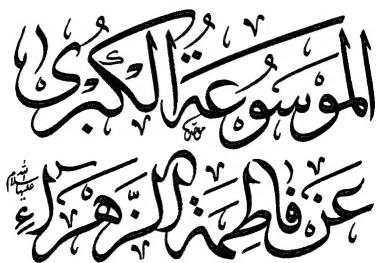 الْمَوْسُوعَةُ الْكُبْرىٰ
عَنْ فَاطِمَةَ الزَّهْرَاءِ عليها السلام